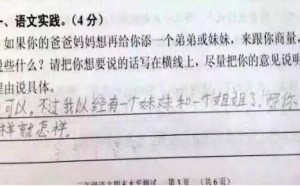 、语文实践。(4分)
如果你的爸爸妈妈想再给你添一个弟弟或妹妹，来跟你商量，
说些什么？请把你想要说的话写在横线上，尽量把你的意见说明
理由说具体。
可以，不过我以经有一个妹妹和一个姐姐了，
样就怎样。
二年级语文期末水平测试 第3页 (共6页)